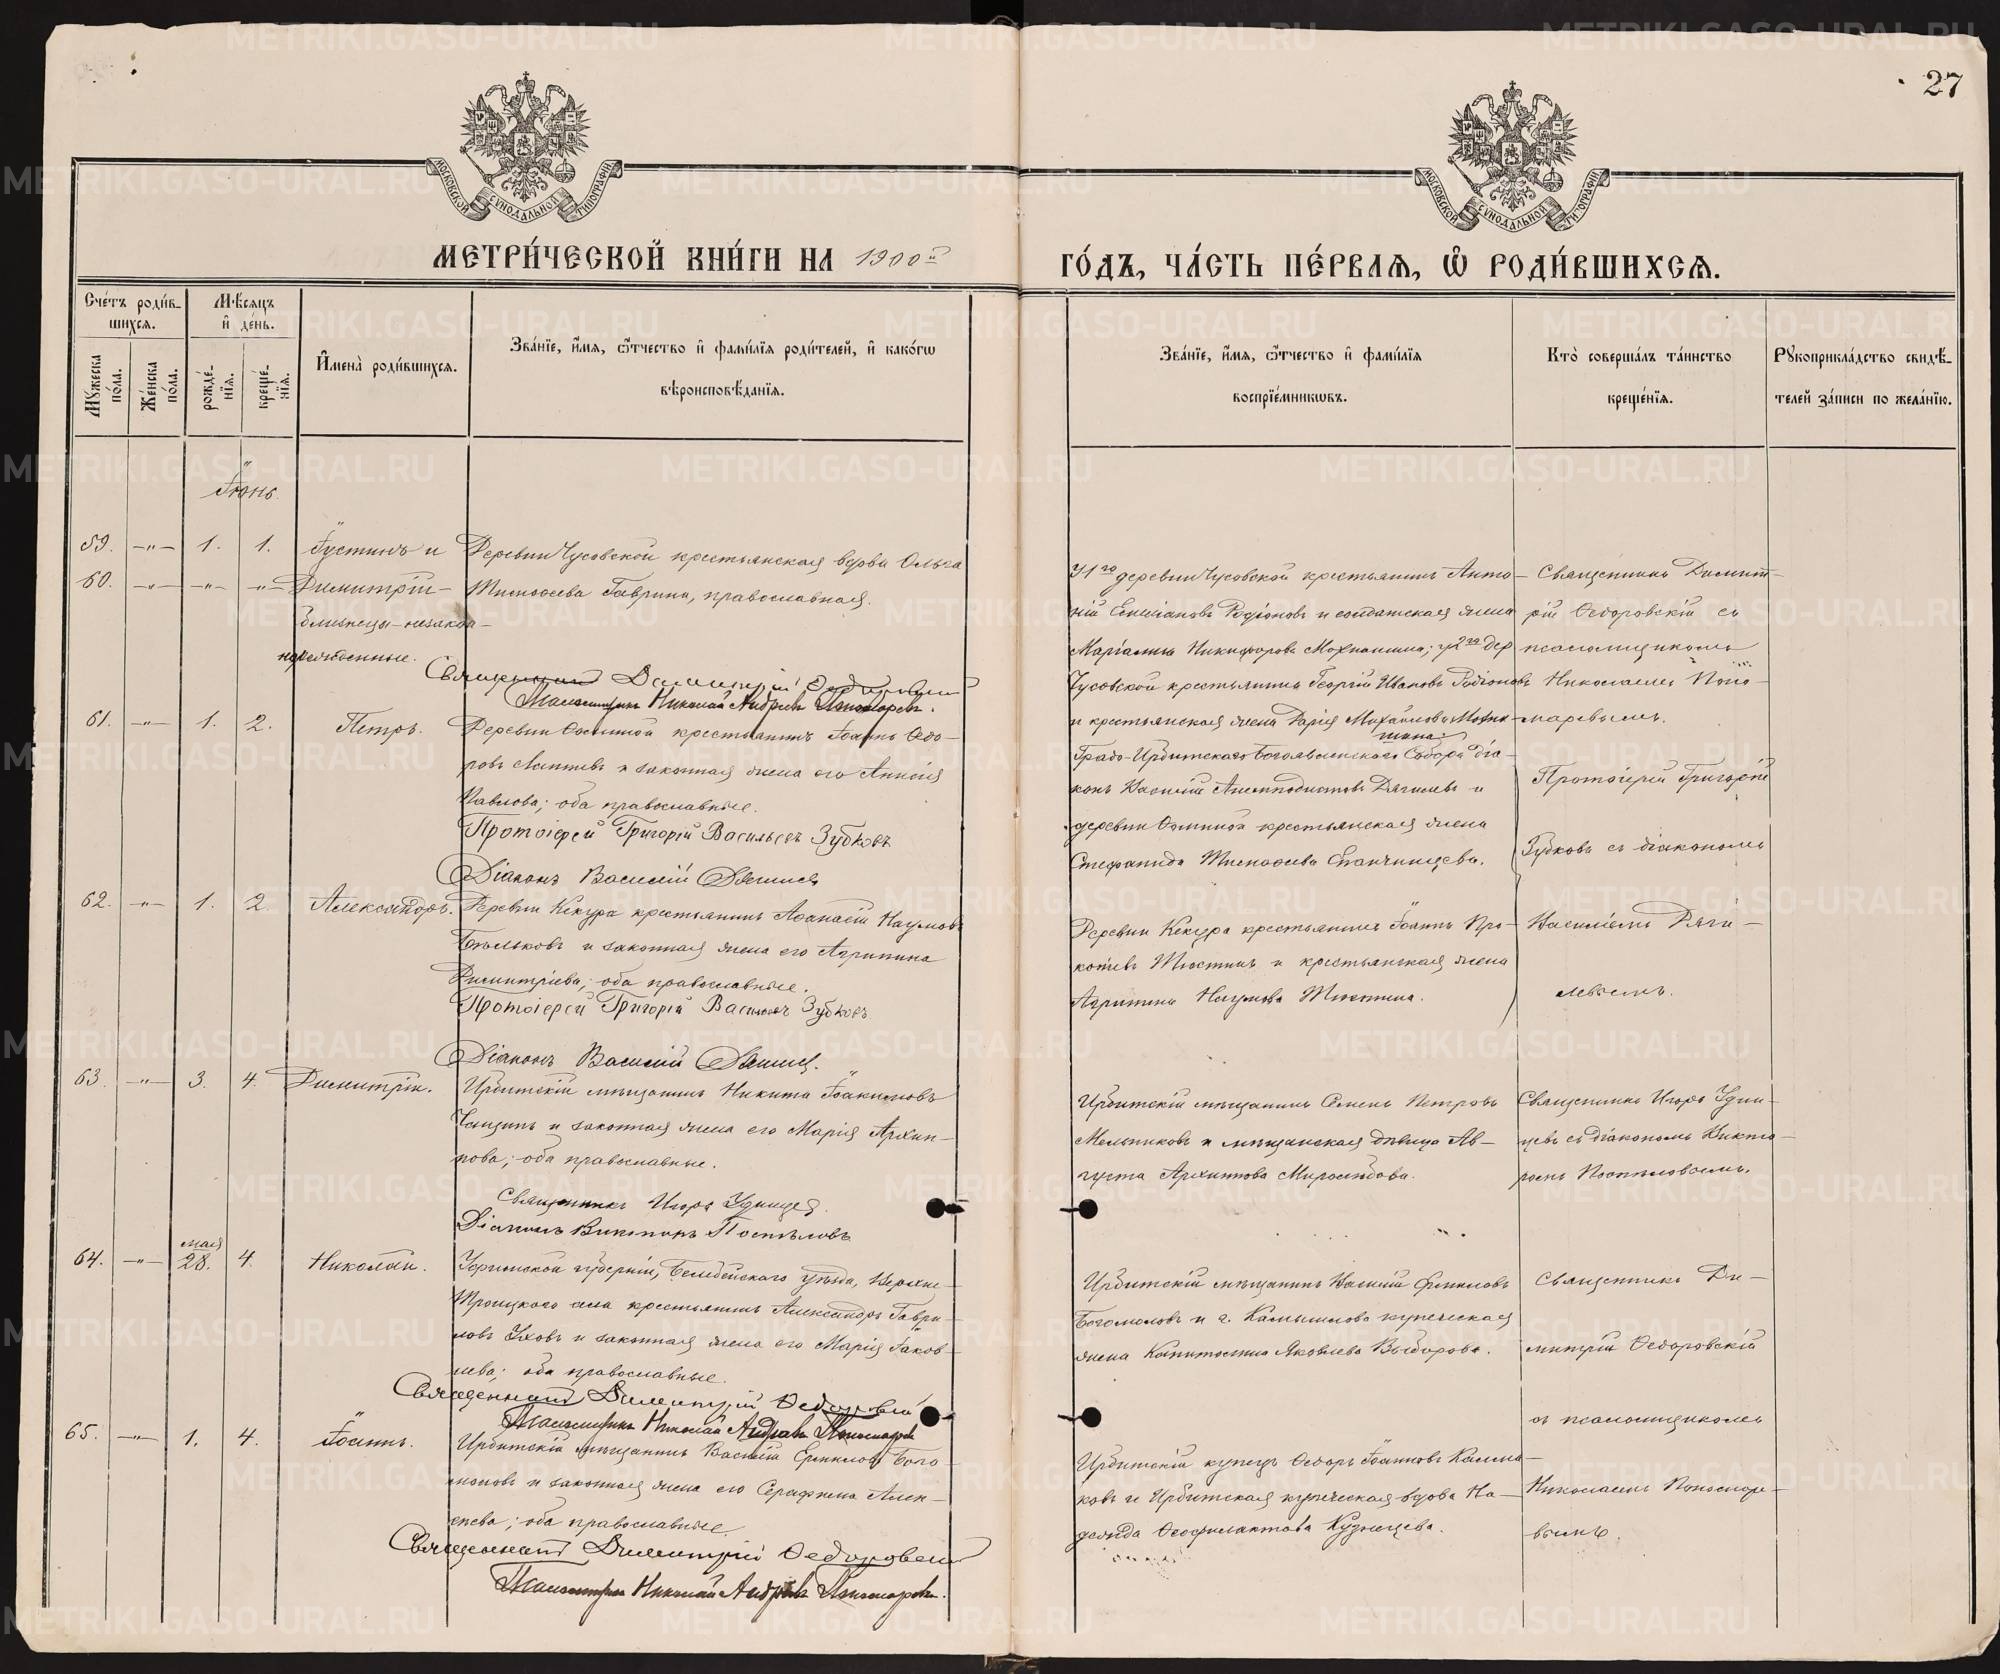 27
МОСКОВСКОЙ СѴНОДАЛЬНОЙ ТИПОГРАФІИ
МОСКОВСКОЙ СѴНОДАЛЬНОЙ ТИПОГРАФІИ
МЕТРИ́ЧЕСКОЙ КНИ́ГИ НА 1900й
ГО́ДЪ, ЧА́СТЬ ПЕ́РВАѦ, Ѡ РОДИ́ВШИХСѦ.
Сче́тъ роди́в-
шихсѧ.
Мꙋ́жеска по́ла.
Же́нска по́ла.
Мѣ́сѧцъ
и҆ де́нь.
рожде́-
нїѧ.
креще́-
нїѧ.
И҆мена̀ роди́вшихсѧ.
Зва́нїе, и҆́мѧ, ѻ҆́тчество и҆ фами́лїѧ роди́телей, и҆ како́гѡ
вѣроисповѣ́данїѧ.
Зва́нїе, и҆́мѧ, ѻ҆́тчество и҆ фами́лїѧ
воспрїе́мникѡвъ.
Кто̀ соверша́лъ та́инство
креще́нїѧ.
Рꙋкоприкла́дство свидѣ́-
телей за́писи по жела́нїю.
Іюнь
59. -"- 1. 1. Іустинъ и
60. -"- -"- -"- Димитрій-
близнецы-незакон-
норожденные.
Деревни Чусовской крестьянская вдова Ольга
Тимофеева Гаврина, православная.
Священникъ Димитрій Ѳедоровскій
Псаломщикъ Николай Андреевъ Пономаревъ.
У 1го деревни Чусовской крестьянинъ Анто-
ній Родіоновъ и солдатская жена
Никифорова у 2го дер
Чусовской крестьянинъ Георгій Ивановъ Родіоновъ
и крестьянская жена Дарія Михайлова
Священникъ Димит-
рій Ѳедоровскій съ
псаломщикомъ
Николаемъ Поно-
маревымъ.
61. -"- 1. 2. Петръ.
Деревни Ѳоминой крестьянинъ Іоаннъ Ѳедо-
ровъ Лаптевъ и законная жена его Анисія
Павлова; оба православные.
Протоіерей Григорій Васильевъ Зубковъ
Діаконъ Василій Дягилевъ
Градо-Ирбитскаго Богоявленскаго Собора діа-
конъ Василій Аѳиноподистовъ Дягилевъ и
деревни Ѳоминой крестьянская жена
Стефанида Тимофеева Епанчинцева.
Протоіерей Григорій
Зубковъ съ діакономъ
62. -"- 1. 2. Александръ.
Деревни Кекура крестьянинъ Аѳанасій Наумовъ
Бѣльковъ и законная жена его Агрипина
Димитріева; оба православные.
Протоіерей Григорій Васильевъ Зубковъ
Діаконъ Василій Дягилевъ.
Деревни Кекура крестьянинъ Іоаннъ Про-
копіевъ и крестьянская жена
Агрипина Наумова
Василіемъ Дяги-
левымъ.
63. -"- 3. 4. Димитрій.
Ирбитскій мѣщанинъ Никита Іоакимовъ
и законная жена его Марія Архип-
пова; оба православные.
Священникъ Игорь Удинцевъ.
Діаконъ Викторъ Поспѣловъ
Ирбитскій мѣщанинъ Семенъ Петровъ
Мельниковъ и мѣщанская дѣвица Ав-
густа Архиппова Миролюбова.
Священникъ Игорь Удин-
цевъ съ діакономъ Викто-
ромъ Поспѣловымъ.
64. -"- мая 28. 4. Николай.
Уфимской губерніи, Белебейскаго уѣзда, Верхне-
Троицкаго села крестьянинъ Александръ Гаври-
ловъ Уховъ и законная жена его Марія Іаков-
лева; оба православные.
Священникъ Димитрій Ѳедоровскій
Псаломщикъ Николай Андреевъ Пономаревъ
Ирбитскій мѣщанинъ Василій Ермиловъ
Богомоловъ и г. Камышлова купеческая
жена Капитолина Яковлева Выборова.
Священникъ Ди-
митрій Ѳедоровскій
съ псаломщикомъ
65. -"- 1. 4. Іоаннъ.
Ирбитскій мѣщанинъ Василій Ермиловъ Бого-
моловъ и законная жена его Серафима Алек-
сѣева; оба православные.
Священникъ Димитрій Ѳедоровскій
Псаломщикъ Николай Андреевъ Пономаревъ.
Ирбитскій купецъ Ѳедоръ Іоанновъ Калма-
ковъ и Ирбитская купеческая вдова На-
дежда Ѳеофилактова Кузнецова.
Николаемъ Пономаре-
вымъ.
METRIKI.GASO-URAL.RU